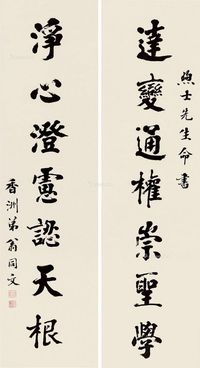 士先生命書
達變通權崇聖學
淨心澄慮認天根
香洲弟翁同文